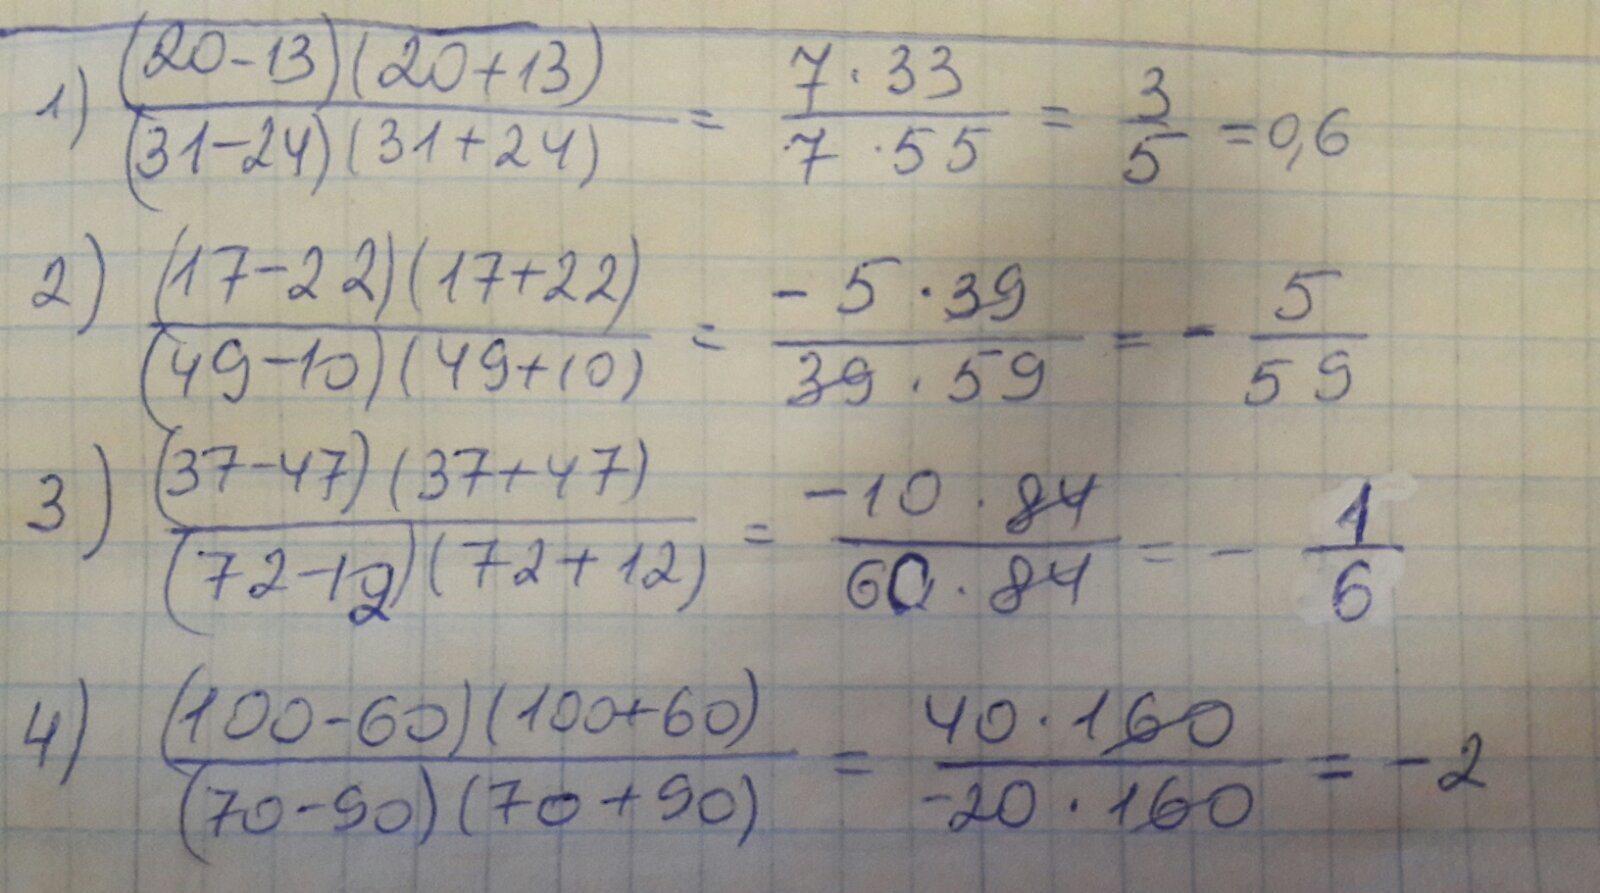 1) (20-13)(20+13)/(31-24)(31+24) = 7·33/7·55 = 3/5 = 0,6
2) (17-22)(17+22)/(49-10)(49+10) = -5·39/39·59 = -5/59
3) (37-47)(37+47)/(72-12)(72+12) = -10·84/60·84 = -1/6
4) (100-60)(100+60)/(70-90)(70+90) = 40·160/-20·160 = -2